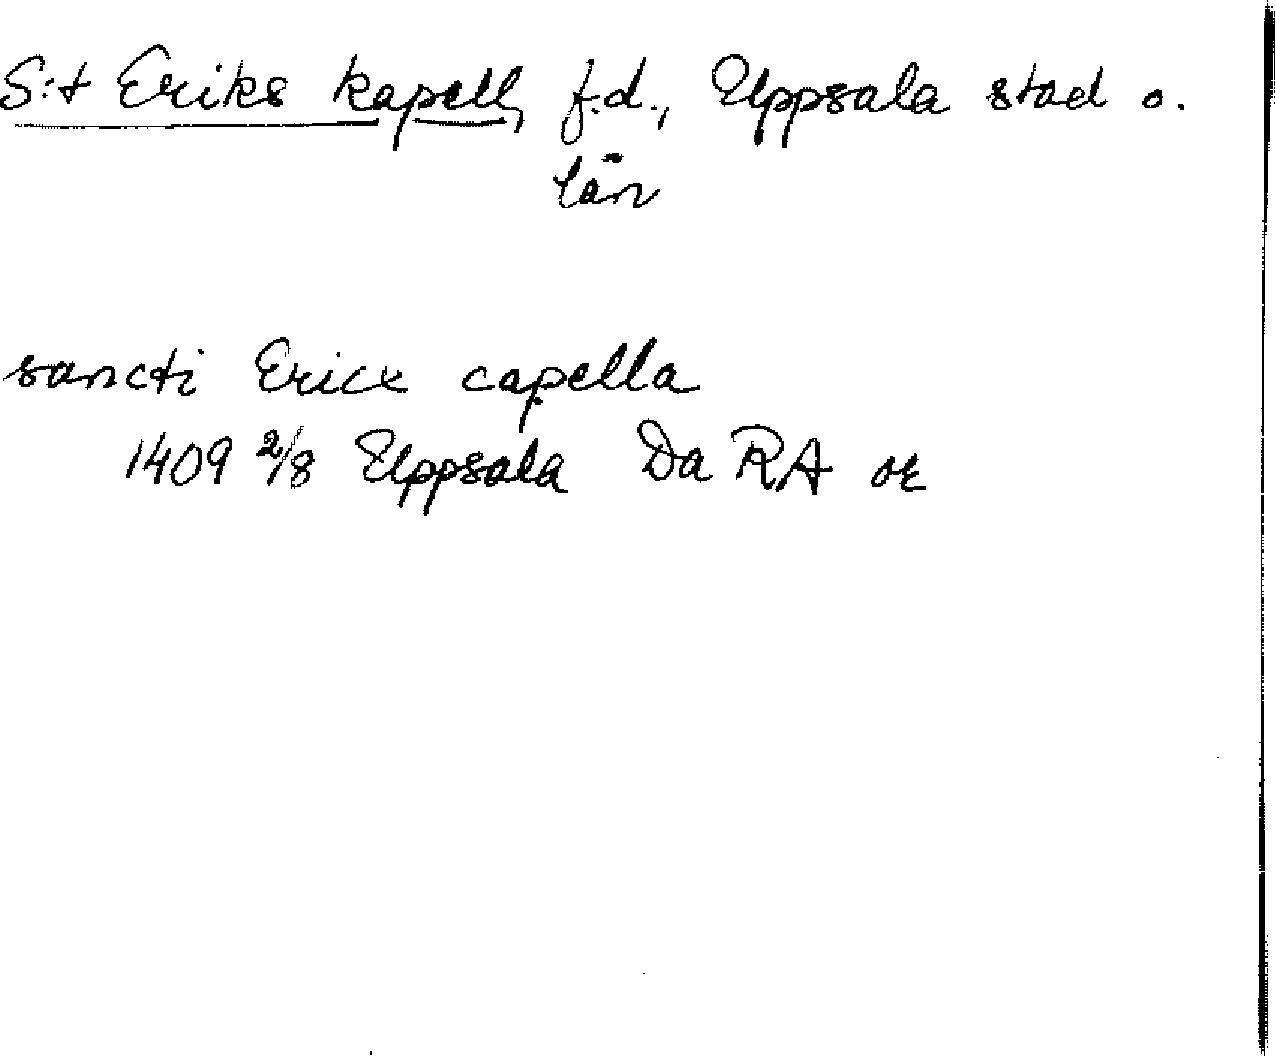 S:t Eriks kapell, f.d., Uppsala stad o.
län
sancti Ericx capella
1409 2/8 Uppsala Da RA or